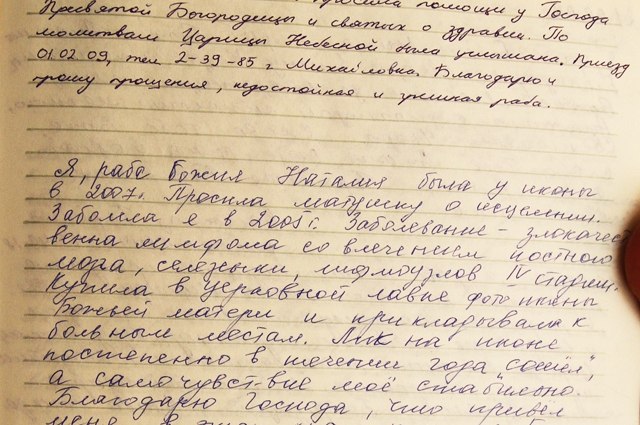 просила помощи у Господа
Пресвятой Богородицы и святых о здравии. По
молитвам Царицы Небесной была услышана. Приезд
01.02.09, тел 2-39-85 г Михайловка. Благодарю и
прошу прощения, недостойная и грешная раба.
Я, раба Божия Наталия была у иконы
в 2007г. Просила матушку о исцелении.
Заболела я в 2005г. Заболевание - злокачест
венна лимфома со влечением костного
мозга, селезенки, лимфоузлов IV стадии.
Купила в церковной лавке фото иконы
Божьей матери и прикладывала к
больным местам. Лик на иконе
постепенно в течении года "сошёл",
а самочувст-вие моё стабильно.
Благодарю Господа, что привёл
меня в